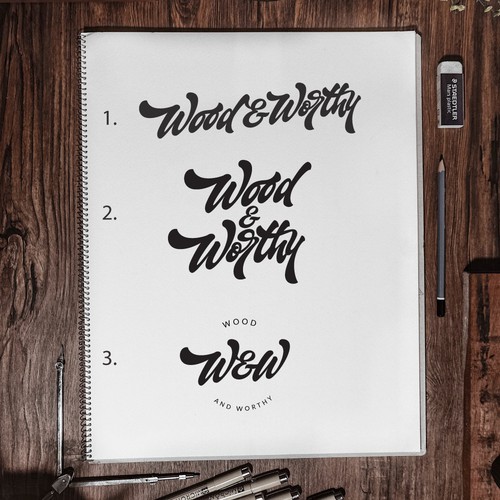 1. Wood & Worthy
2. Wood
&
Worthy
WOOD
3. W&W
AND WORTHY
STAEDTLER
Mars plastic